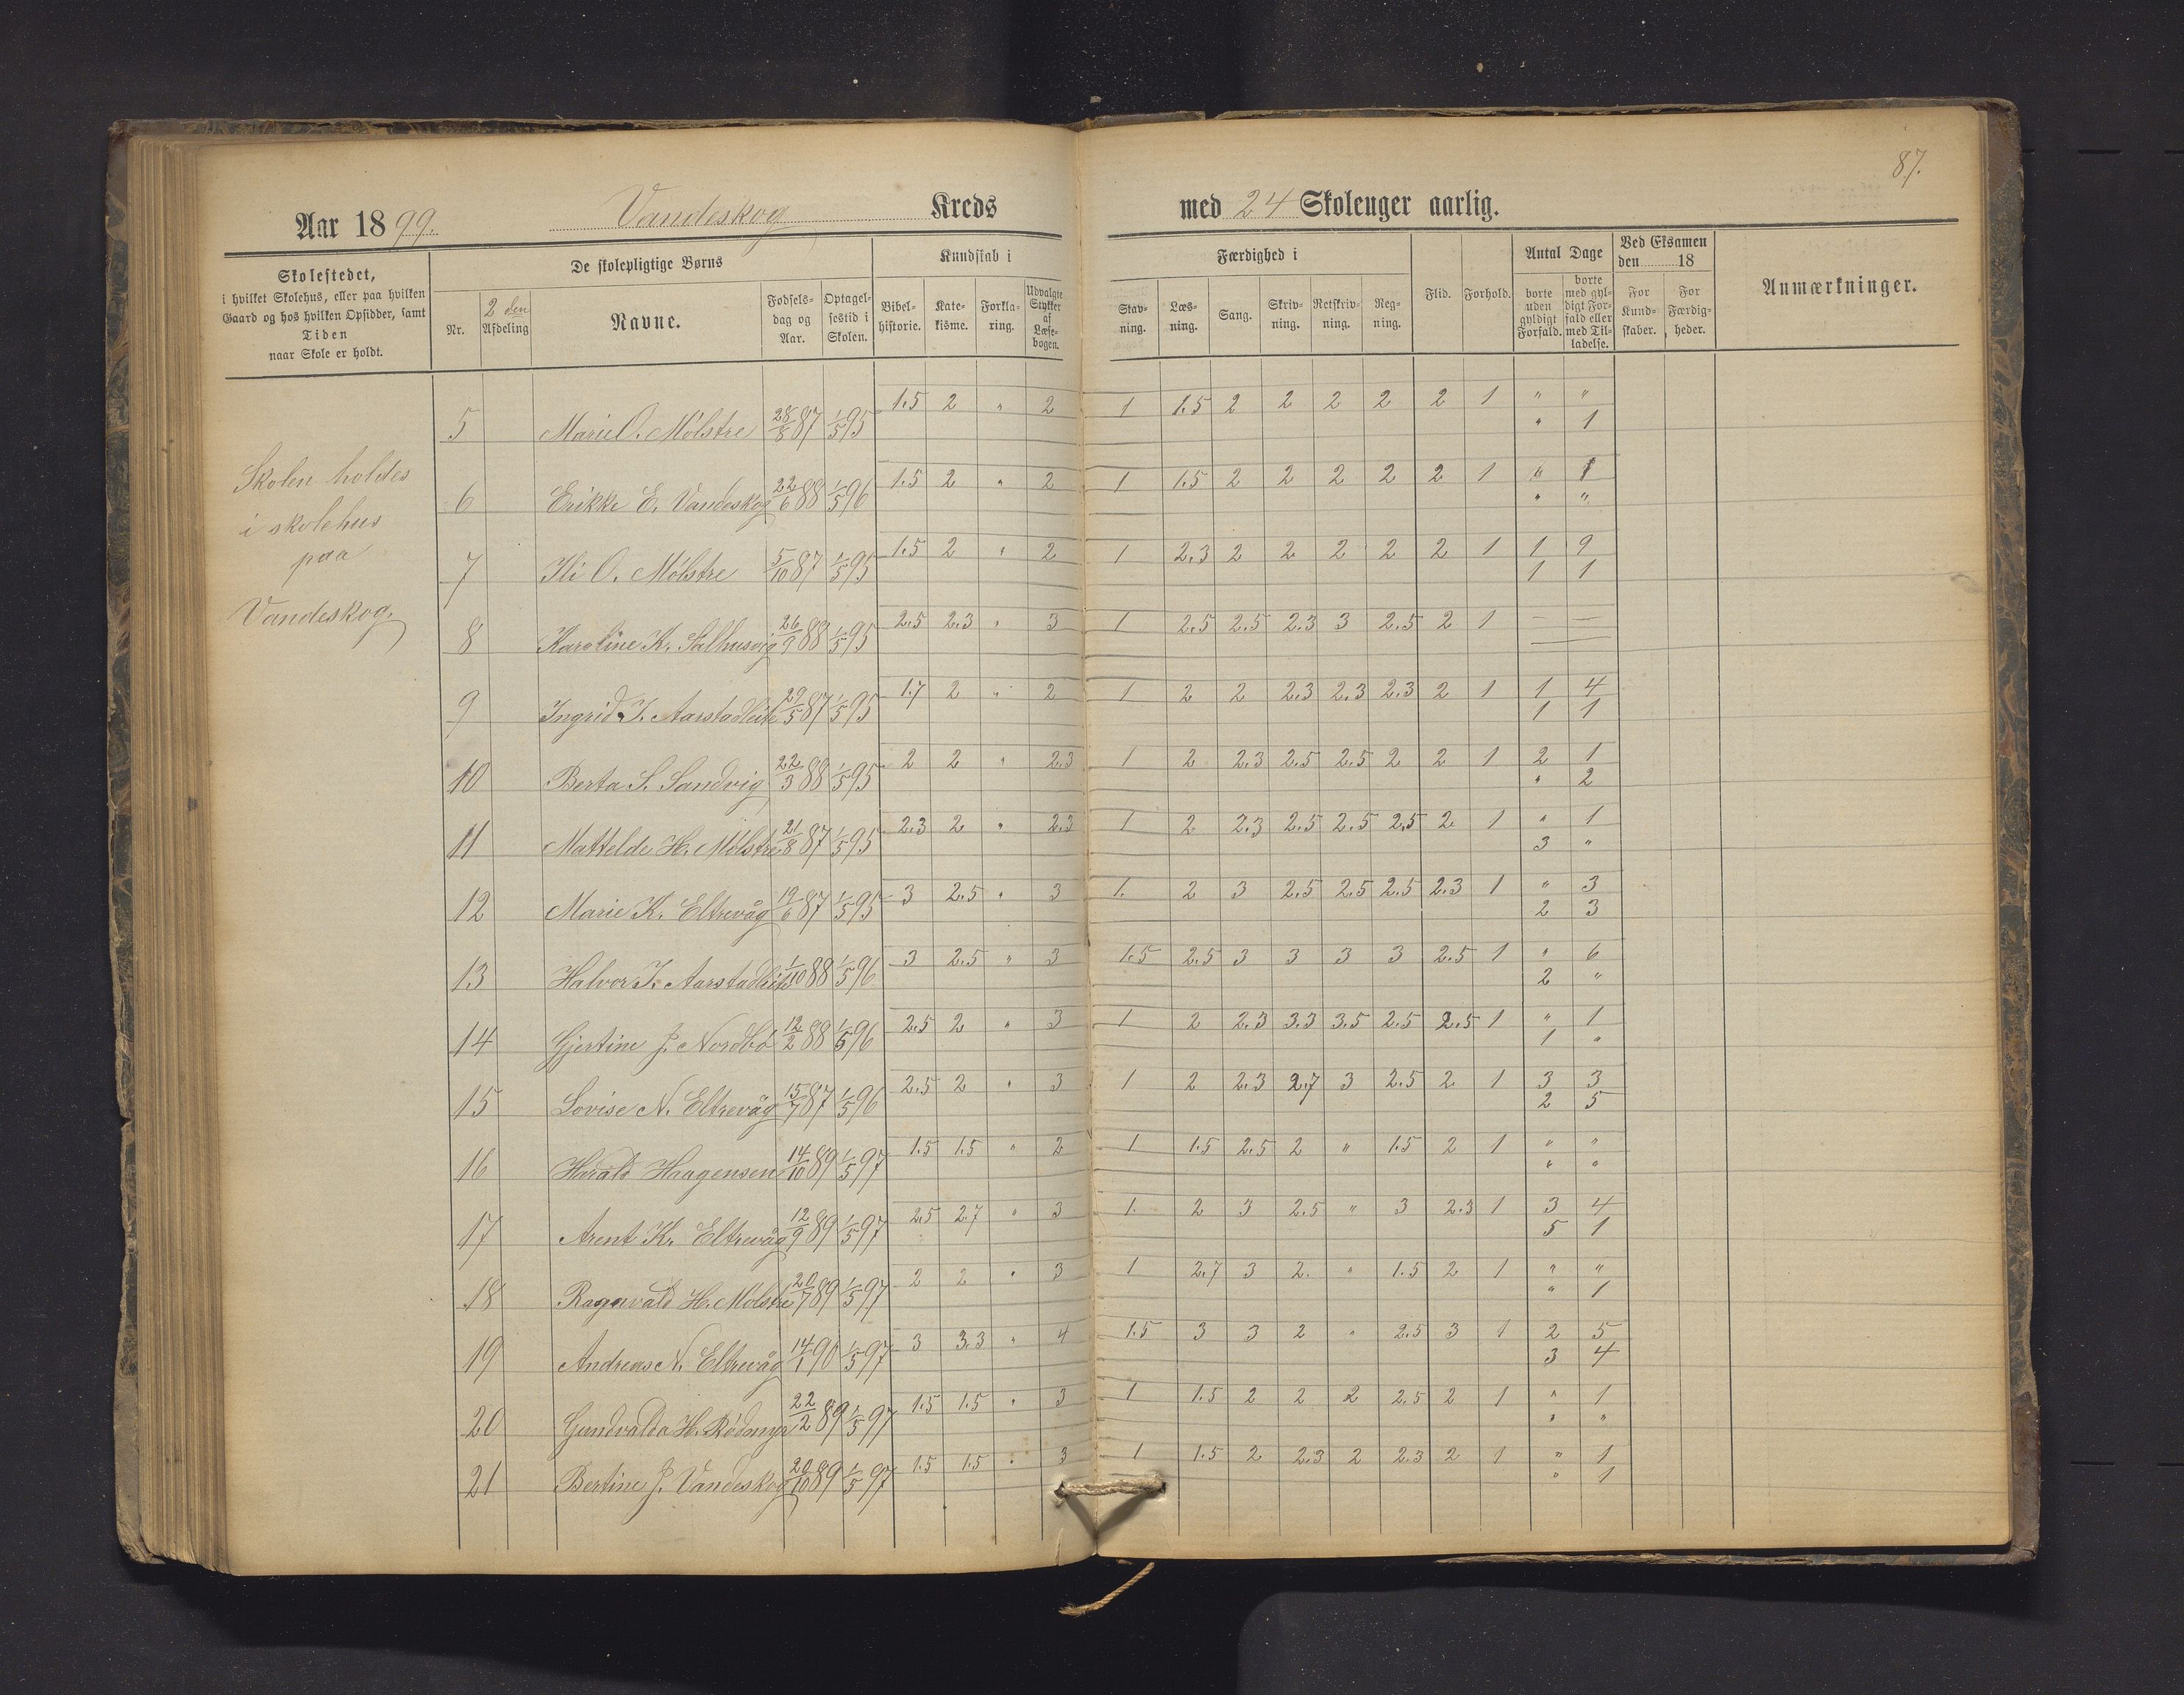 87.
Aar 1899. Vandeskog Kreds med 24 Skoleuger aarlig.
Skolestedet, i hvilket Skolehus, eller paa hvilken Gaard og hos hvilken Opsidder, samt Tiden naar Skole er holdt.
De skolepligtige Børns
Nr. 2 den Afdeling Navne. Fødsels- dag og Aar. Optagel- sestid i Skolen.
Kundskab i
Bibel- historie. Kate- kisme. Forkla- ring. Udvalgte Stykker af Læse- bogen.
Færdighed i
Stav- ning. Læs- ning. Sang. Skriv- ning. Retskriv- ning. Reg- ning.
Flid. Forhold.
Antal Dage
borte uden gyldigt Forfald. borte med gyl- digt For- fald eller med Til- ladelse.
Ved Eksamen den 18
For Kund- skaber. For Færdig- heder.
Anmærkninger.
Skolen holdes
i skolehus
paa
Vandeskog.
5 Marie O. Mølstre 28/8 87 1/5 95 1.5 2 " 2 1 1.5 2 2 2 2 2 1 " "
" 1
6 Erikke E. Vandeskog 22/6 88 1/5 96 1.5 2 " 2 1 1.5 2 2 2 2 2 1 " 1
" "
7 Ili O. Mølstre 5/10 87 1/5 95 1.5 2 " 2 1 2.3 2 2 2 2 2 1 1 9
1 1
8 Karoline K. Salhusvig 26/9 88 1/5 95 2.5 2.3 " 3 1 2.5 2.5 2.3 3 2.5 2 1 — —
9 Ingrid J. Aarstadleite 29/5 87 1/5 95 1.7 2 " 2 1 2 2 2.3 2.3 2.3 2 1 1 4
1 1
10 Berta S. Sandvig 22/3 88 1/5 95 2 2 " 2.3 1 2 2.3 2.5 2.5 2 2 1 2 1
" 2
11 Mattelde H. Mølstre 21/8 87 1/5 95 2.3 2 " 2.3 1 2 2.3 2.5 2.5 2.5 2 1 " 1
3 "
12 Marie K. Eltrevåg 19/6 87 1/5 95 3 2.5 " 3 1. 2 3 2.5 2.5 2.5 2.3 1 " 3
2 3
13 Halvor J. Aarstadleite 1/10 88 1/5 96 3 2.5 " 3 1.5 2.5 3 3 3 3 2.5 1 " 6
2 "
14 Gjertine J. Nordbø 12/2 88 1/5 96 2.5 2 " 3 1 2 2.3 3.3 3.5 2.5 2.5 1 " 1
1 "
15 Lovise N. Eltrevåg 15/7 87 1/5 96 2.5 2 " 3 1 2 2.3 2.7 3 2.5 2 1 3 3
2 5
16 Harald Haagensen 14/10 89 1/5 97 1.5 1.5 " 2 1 1.5 2.5 2 " 1.5 2 1 " "
" "
17 Arent K. Eltrevåg 12/9 89 1/5 97 2.5 2.7 " 3 1. 2 3 2.5 " 3 2.3 1 3 4
5 1
18 Ragnvald H. Mølstre 20/7 89 1/5 97 2 2 " 3 1 2.7 3 2. " 1.5 2 1 " "
" 1
19 Andreas N. Eltrevåg 14/1 90 1/5 97 3 3.3 " 4 1.5 3 3 2 " 2.5 3 1 2 5
3 4
20 Gundvalda H. 22/2 89 1/5 97 1.5 1.5 " 3 1 1.5 2 2 2 2.5 2 1 " 1
" "
21 Bertine J. Vandeskog 20/10 89 1/5 97 1.5 1.5 " 3 1 1.5 2 2.3 2 2.3 2 1 " 1
" 1